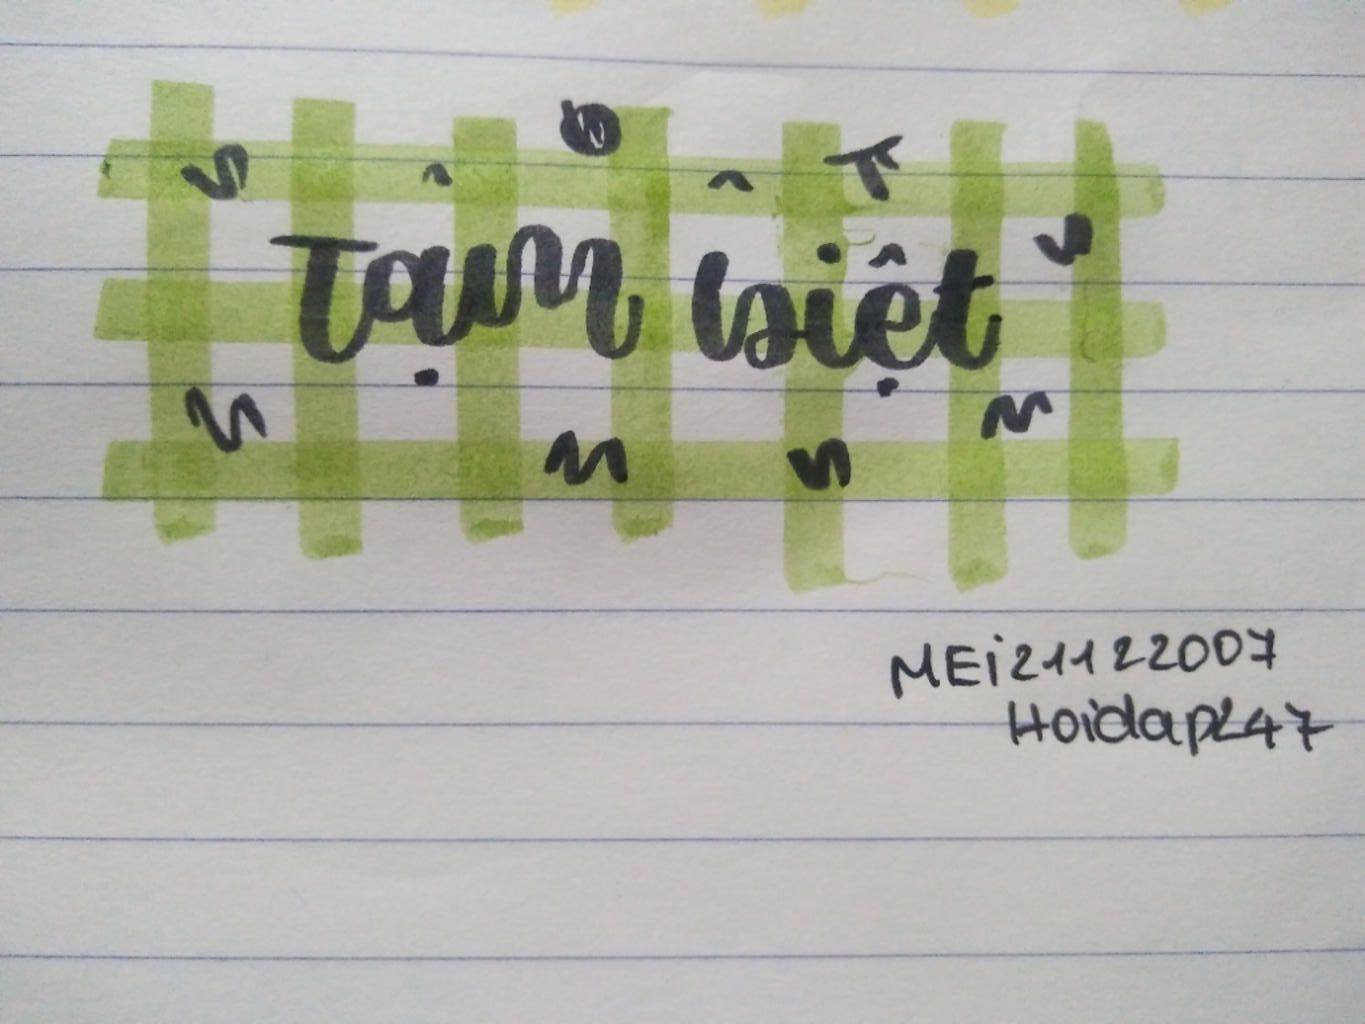 Tạm biệt
MEi21122007
Hoidap247